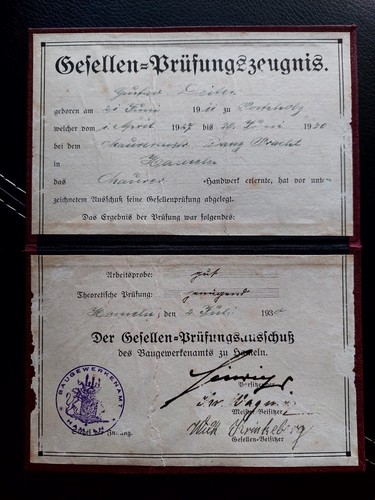 Gesellen=Prüfungszeugnis.
Gustav
geboren am 21 Juni 19 zu
welcher vom 1. April 1927 bis 30. Juni 1930
bei dem Maurermstr.
in Hameln
das Maurer =Handwerk erlernte, hat vor unter=
zeichnetem Ausschuß seine Gesellenprüfung abgelegt.
Das Ergebnis der Prüfung war folgendes:
Arbeitsprobe: gut
Theoretische Prüfung: genügend
Hameln, den 2. Juli 1930
Der Gesellen=Prüfungsausschuß
des Baugewerkenamts zu Hameln.
Vorsitzender
Wagner
Meister=Beisitzer
BAUGEWERKENAMT
HAMELN
Gesellen=Beisitzer